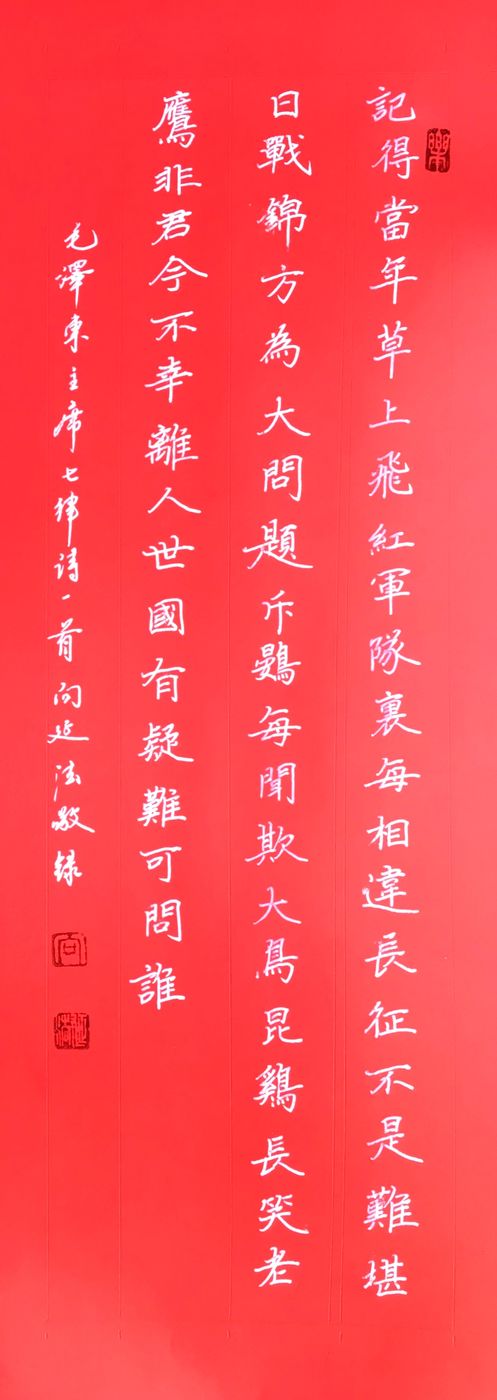 樂
記得當年草上飛紅軍隊裏每相違長征不是難堪
日戰錦方為大問題斥鷃每聞欺大鳥昆鷄長笑老
鷹非君今不幸離人世國有疑難可問誰
毛澤東主席七律詩一首向延法敬録
向
延法